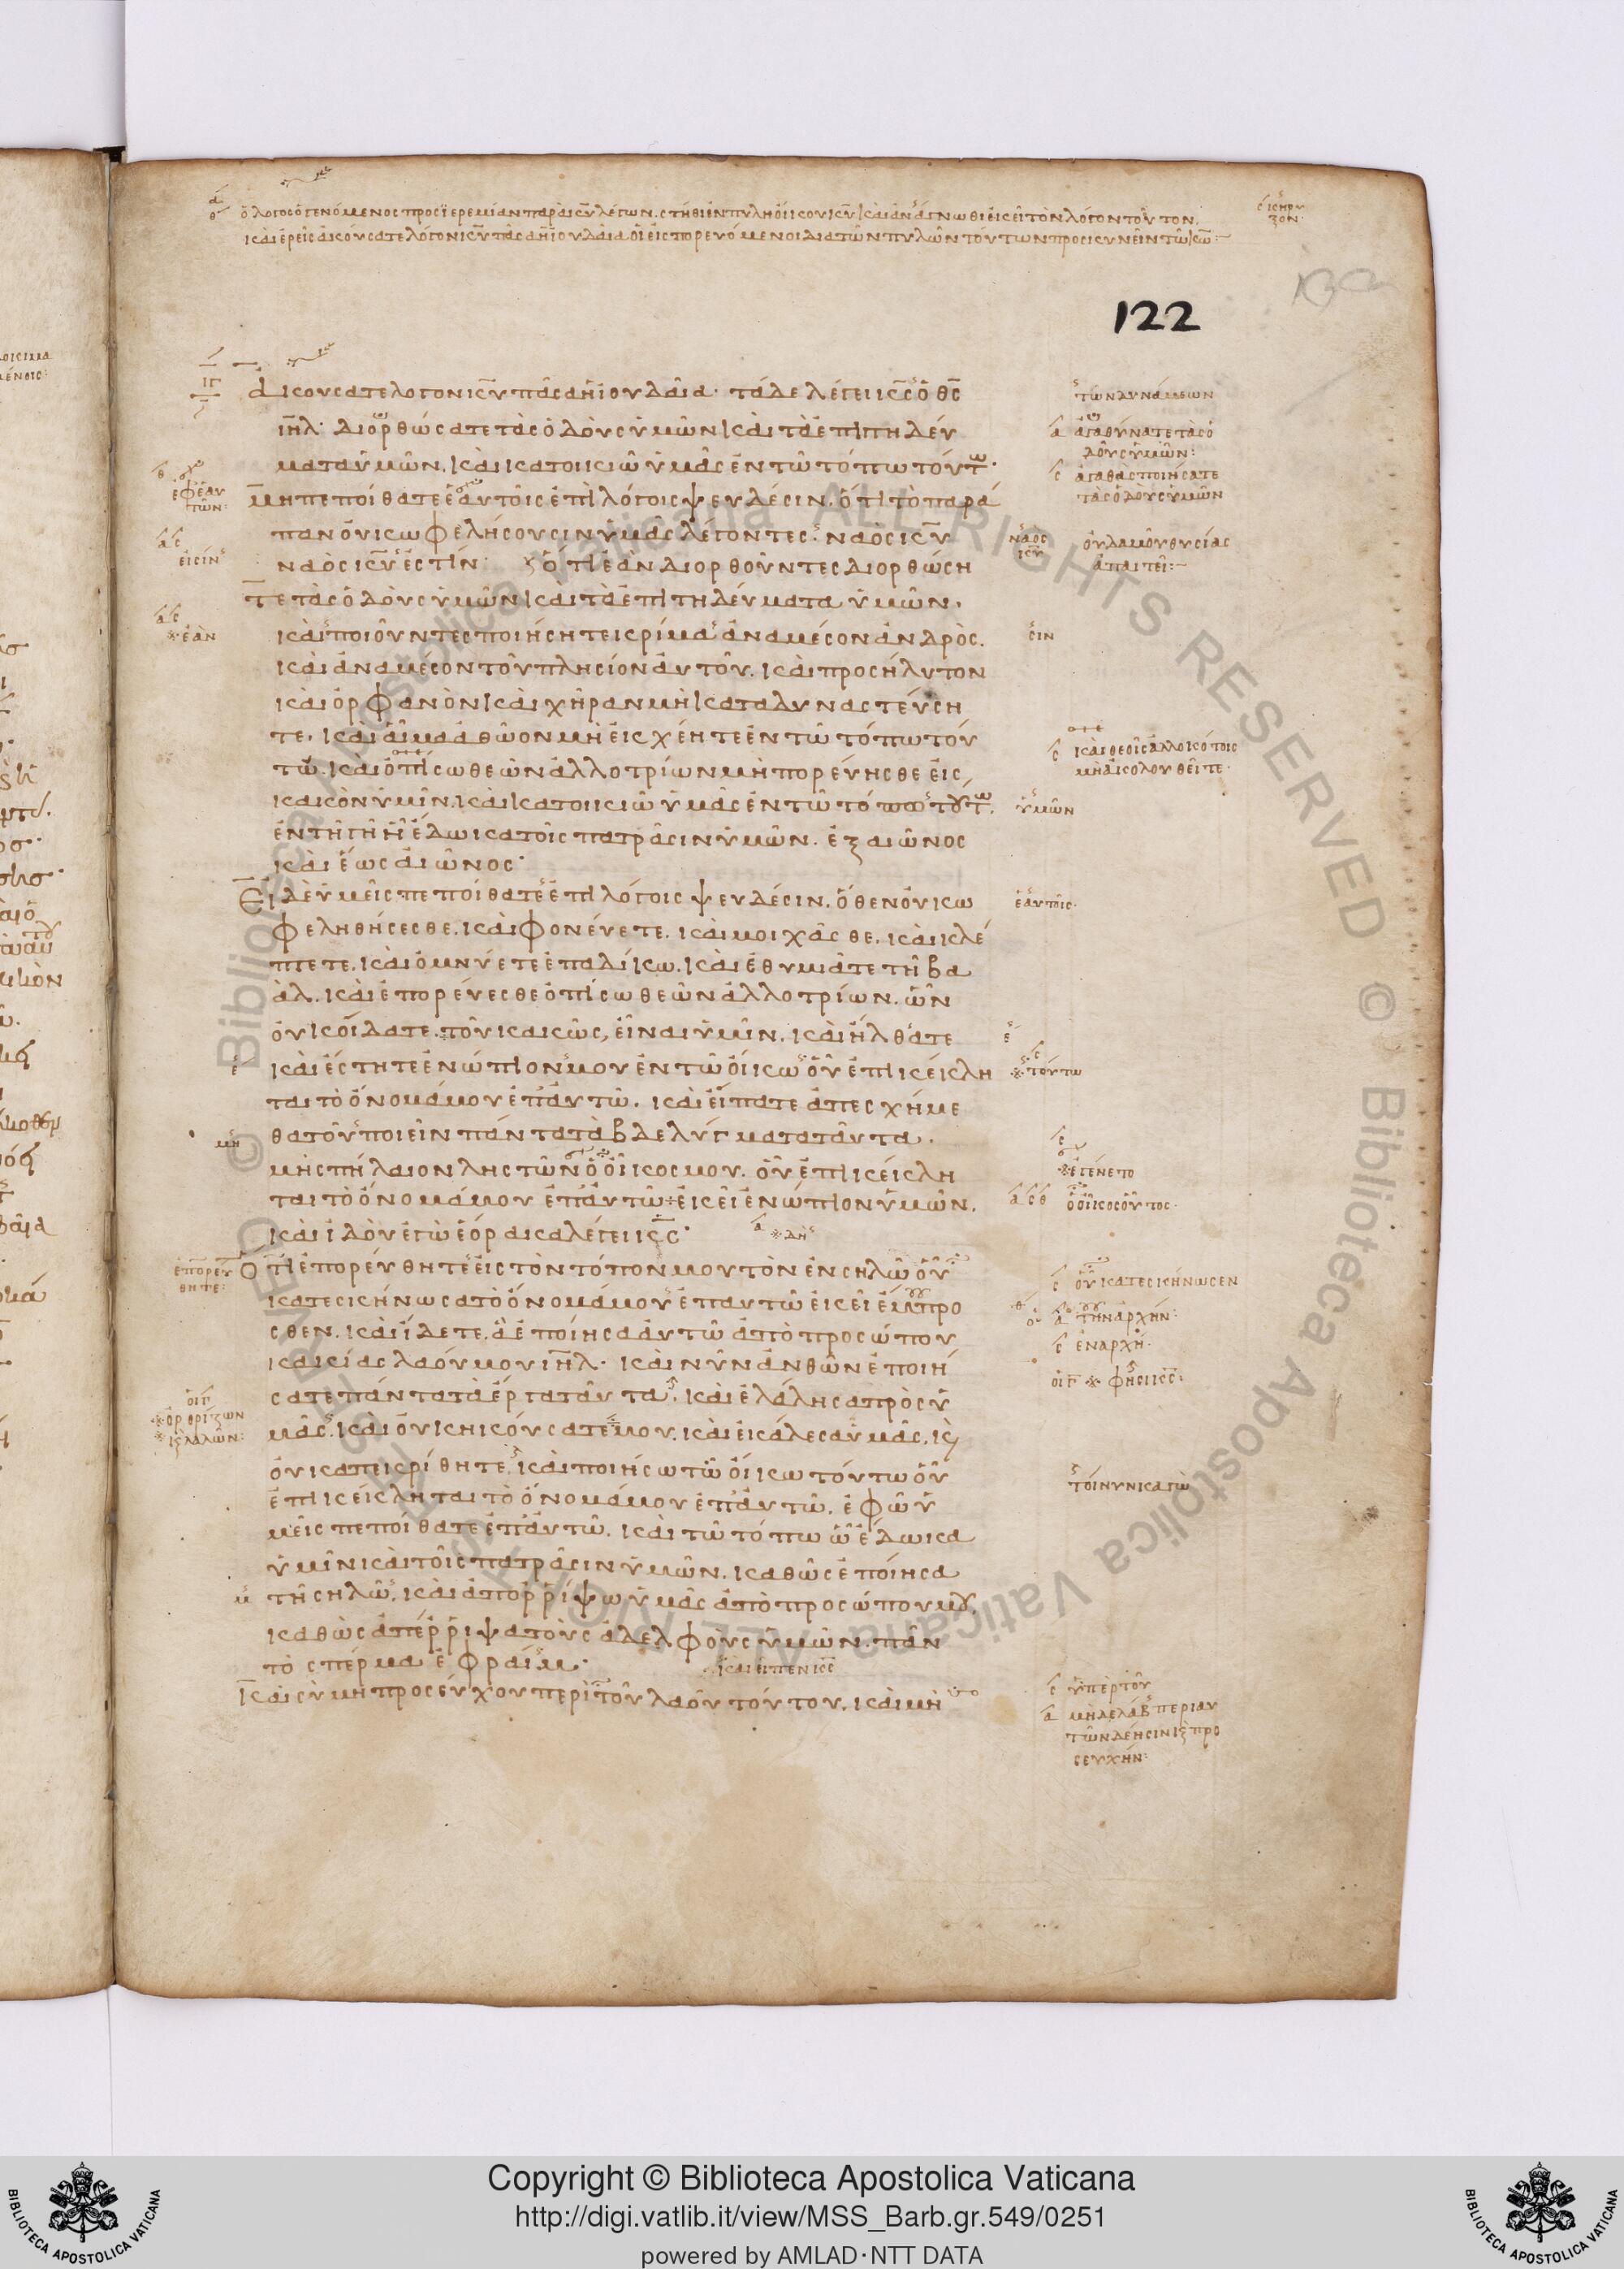 ὁ λογος ὁ γενόμενος προς ϊερεμίαν παρὰ κ̅υ̅ λέγων. στῆθι ἐν πυλη ὁίκου κ̅υ̅ καὶ ἀνάγνωθι ἐκεῖ τὸν λόγον τοῦτον.
καὶ ἐρεῖς ἀκούσατε λόγον κ̅υ̅ πᾶσα ἡ ϊουδαία οἱ εἰσπορευόμενοι δια τῶν πυλῶν τούτων προσκυνεῖν τῶ κ̅ω̅:
κήρυ
ξον·
122
ἀκουσατε λογον κ̅υ̅ πᾶσα ἡ ϊουδαία· τάδε λέγει κ̅ς̅ ὁ θ̅ς̅
ι̅η̅λ̅· διορθώσατε τὰς ὁδοὺς ὑμῶν καὶ τὰ ἐπιτηδεύ
ματα ὑμῶν. καὶ κατοικιῶ ὑμᾶς ἐν τῶ τόπω τούτ·
μη πεποίθατε ἐαυτοῖς ἐπὶ λόγοις ψευδέσιν. ὅτι τὸ παρά
παν οὐκ ωφελήσουσιν ὑμᾶς λέγοντες· ναὸς κ̅υ̅
ναὸς κ̅υ̅ ἐστίν· ὅτι ἐὰν διορθοῦντες διορθώση
τε τὰς ὁδοὺς ὑμῶν καὶ τὰ ἐπιτηδεύματα ὑμῶν.
καὶ ποιοῦντες ποιήσητε κρίμα ἀναμέσον ἀνδρὸς.
καὶ ἀναμέσον τοῦ πλησίον ἀυτοῦ. καὶ προσήλυτον
καὶ ὀρφανὸν καὶ χήραν μὴ καταδυναστεύση
τε. καὶ ἁῖμα ἀθῶον μὴ ἐκχέητε ἐν τῶ τόπω τού
τω. καὶ ὀπίσω θεῶν ἀλλοτρίων μὴ πορεύησθε ἐις
κακὸν ὑμῖν. καὶ κατοικιῶ ὑμᾶς ἐν τῶ τόπω τούτ.
ἐν τῆ γῆ ἧ ἔδωκα τοῖς πατράσιν ὑμῶν. ἐξ αιῶνος
καὶ ἕως ἀιῶνος·
Ἐι δὲ ὑμεῖς πεποίθατε ἐπὶ λόγοις ψευδέσιν. ὅθεν οὐκ ω
φεληθήσεσθε. καὶ φονεύετε. καὶ μοιχᾶσθε. καὶ κλέ
πτετε. καὶ ὀμνύετε ἐπαδίκω. καὶ ἐθυμιᾶτε τῆ βα
ὰλ. καὶ ἐπορεύεσθε ὀπίσω θεῶν ἀλλοτρίων. ὧν
ὀυκ οἴδατε. τοῦ κακῶς εἶναι ὑμῖν. καὶ ἤλθατε
καὶ ἔστητε ἐνώπιον μου ἐν τῶ ὀίκω οὗ ἐπικέκλη
ται τὸ ὄνομά μου ἐπ ἀυτῶ. καὶ εἴπατε ἀπεσχήμε
θα τοῦ ποιεῖν πάντα τὰ βδελύγματα ταῦτα.
μὴ σπήλαιον ληστῶν ὁ ὀῖκος μου. οὗ ἐπικέκλη
ται τὸ ὄνομά μου ἐπ ἀυτῶ ἐκεῖ ἐνώπιον ὑμῶν.
καὶ ἰδοὺ ἐγὼ ἑόρακα λέγει κ̅ς̅·
Ὅτι ἐπορεύθητε ἐις τὸν τόπον μου τὸν ἐν σηλὼ οὗ
κατεσκήνωσα τὸ ὄνομά μου ἐπ αυτῶ ἐκεῖ ἔμπρο
σθεν. καὶ ἴδετε. ἃ ἐποίησα ἀυτῶ ἀπὸ προσώπου
κακίας λαοῦ μου ι̅η̅λ̅· καὶ νῦν ἀνθῶν ἐποιή
σατε πάντα τὰ ἔργα ταῦτα. καὶ ἐλάλησα πρὸς ὑ
μᾶς. καὶ οὐκ ἠκούσατέ μου. καὶ ἐκάλεσα ὑμᾶς. κ
ὀυκ απεκρίθητε. καὶ ποιήσω τῶ ὀίκω τούτω οὗ
ἐπικέκληται τὸ ὄνομά μου ἐπ ἀυτῶ. ἐφ ῶ ὑ
μεῖς πεποίθατε ἐπ ἀυτῶ. καὶ τῶ τόπω ᾧ ἔδωκα
ὑμῖν καὶ τοῖς πατράσιν ὑμῶν. καθὼς ἐποίησα
τῆ σηλὼ. καὶ ἀπορρίψω ὑμᾶς ἀπὸ προσώπου μου.
καθὼς ἀπέρριψα τοὺς ἀδελφοὺς ὑμῶν. πᾶν
τὸ σπέρμα ἐφραίμ·
καὶ εἶπεν κ̅ς̅
Καὶ σὺ μη προσεύχου περὶ τοῦ λαοῦ τούτου. καὶ μὴ
ἐφ ἑαυ
τῶν:
εἰσίν
ἐὰν
μὴ
ἐπορεύ
θητε:
ὀρθρίζων
κ λαλῶν:
τῶν δυνάμεων
ἀγαθύνατε τὰς ὁ
δοὺς ὑμῶν:
ἀγαθὰς ποιήσατε
τὰς ὁδοὺς ὑμῶν
ναὸς
κ̅υ̅
ἀπαιτεῖ:
σιν
καὶ θεοῖς ἀλλοκότοις
μὴ ἀκολουθεῖτε·
ὑμῶν
ἑαυτοῖς·
τούτω
ἐγένετο
ὁ οἶκος οὗτος·
δὴ
οὗ κατεσκήνωσεν
τὴν αρχήν:
ἐν αρχῆ·
φησὶ κ̅ς̅:
τοίνυν καγὼ
ὑπὲρ τοῦ
μὴ δὲ λάβ περι αυ
τῶν δέησιν κ προσ
ευχήν:
Copyright © Biblioteca Apostolica Vaticana
http://digi.vatlib.it/view/MSS_Barb.gr.549/0251
powered by AMLAD·NTT DATA
BIBLIOTECA APOSTOLICA VATICANA
BIBLIOTECA APOSTOLICA VATICANA
© Biblioteca Apostolica Vaticana ALL RIGHTS RESERVED
© Biblioteca Apostolica Vaticana ALL RIGHTS RESERVED